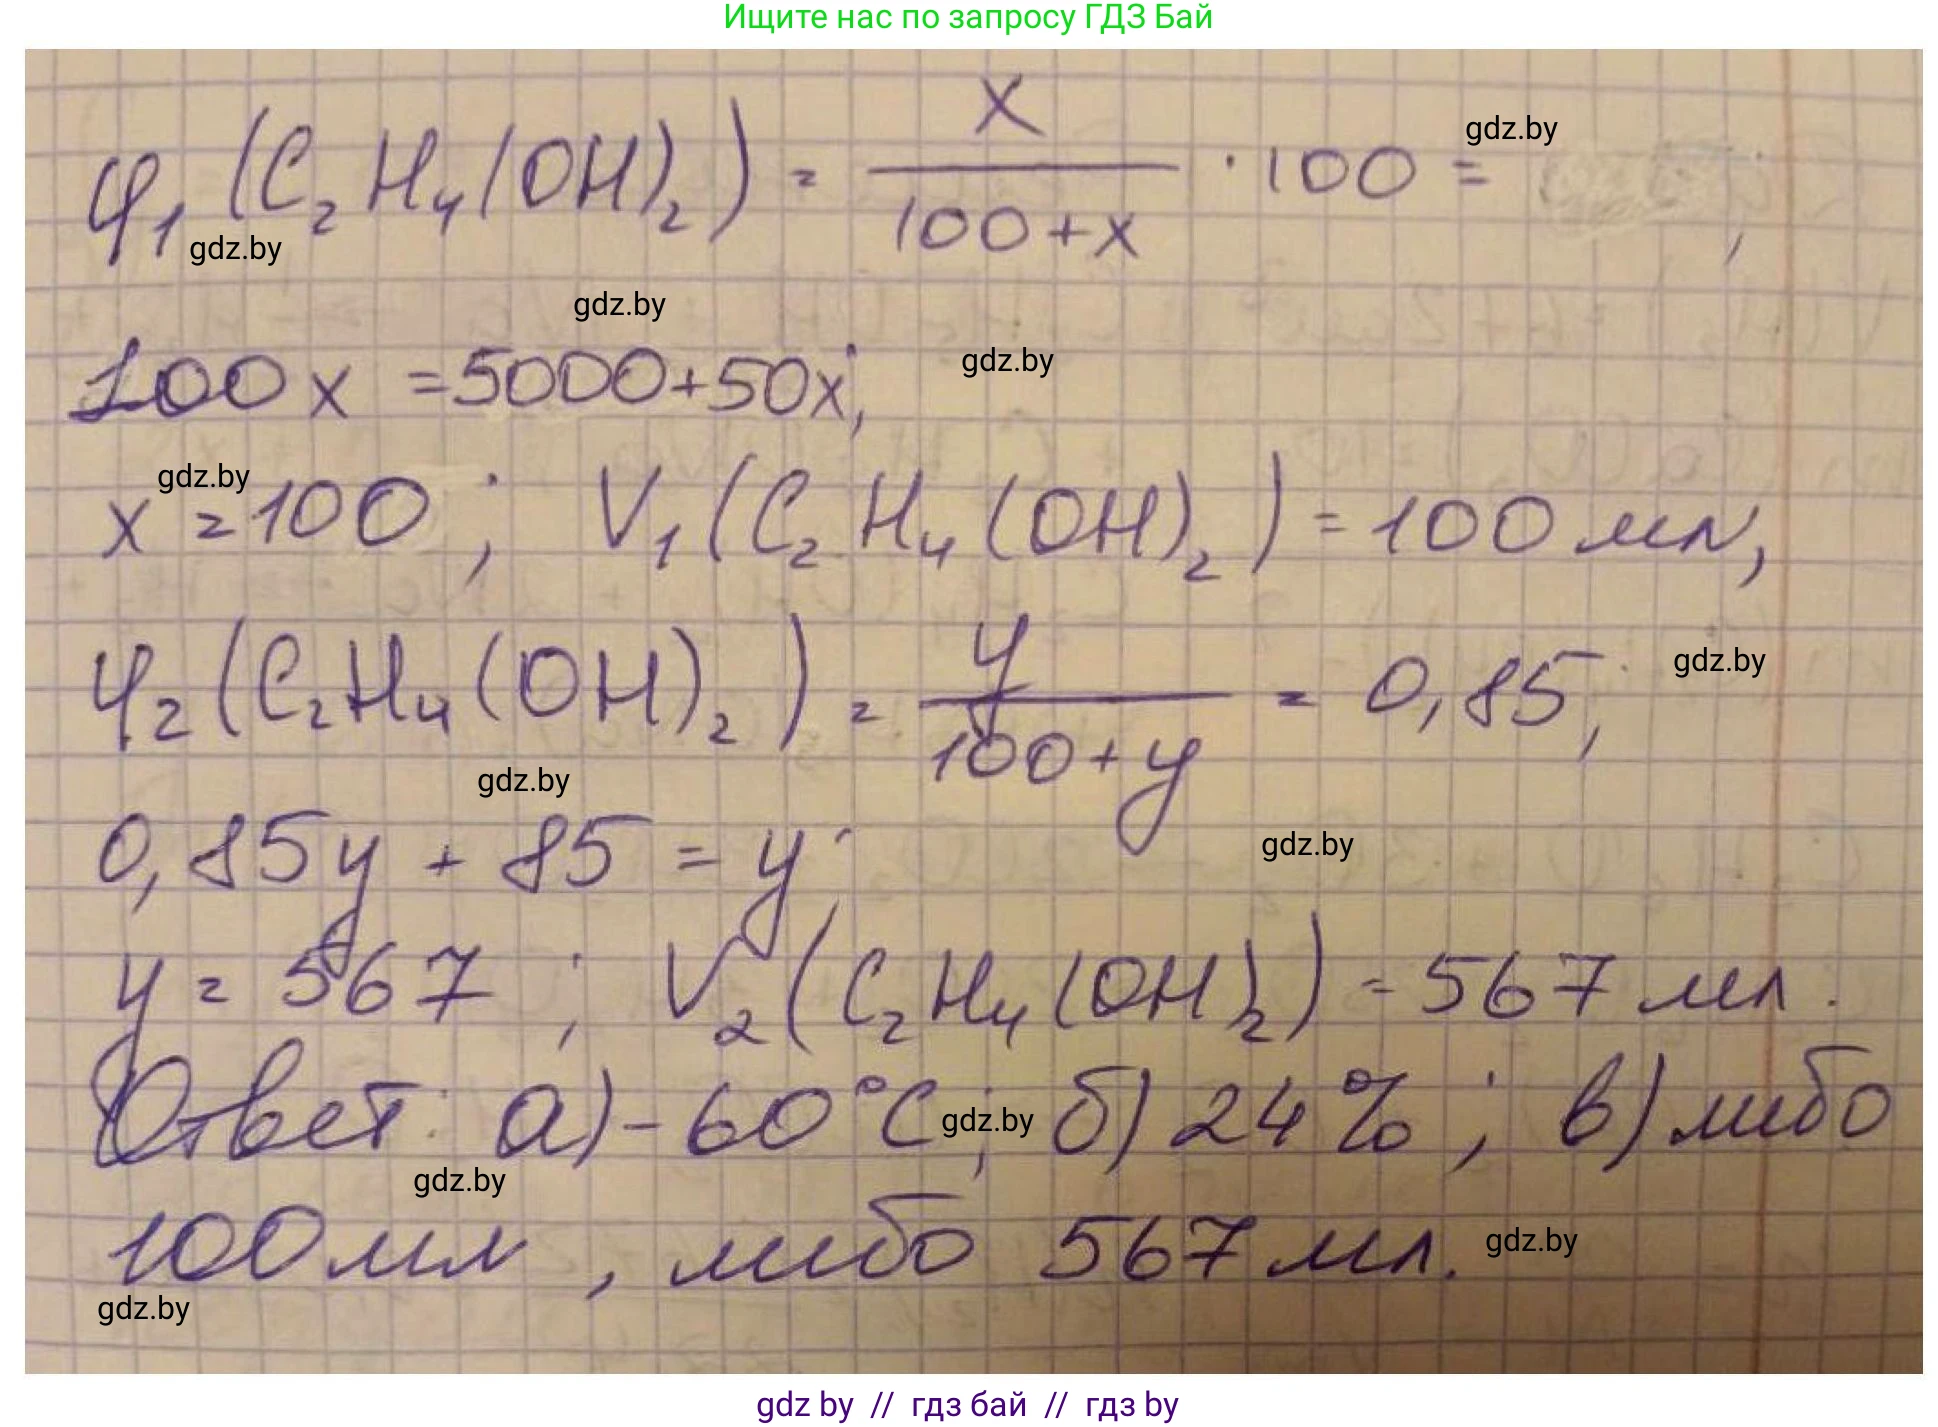 Ищите нас по запросу ГДЗ Бай
φ₁(C₂H₄(OH)₂) = x / (100+x) · 100 = ;
gdz.by
gdz.by
gdz.by
100x = 5000+50x;
gdz.by
gdz.by
x = 100; V₁(C₂H₄(OH)₂) = 100 мл,
φ₂(C₂H₄(OH)₂) = y / (100+y) = 0,85;
gdz.by
gdz.by
0,85y + 85 = y;
gdz.by
y = 567; V₂(C₂H₄(OH)₂) = 567 мл.
Ответ: а) -60°C; б) 24%; в) либо
gdz.by
gdz.by
100 мл, либо 567 мл.
gdz.by
gdz.by
gdz by // гдз бай // гдз by